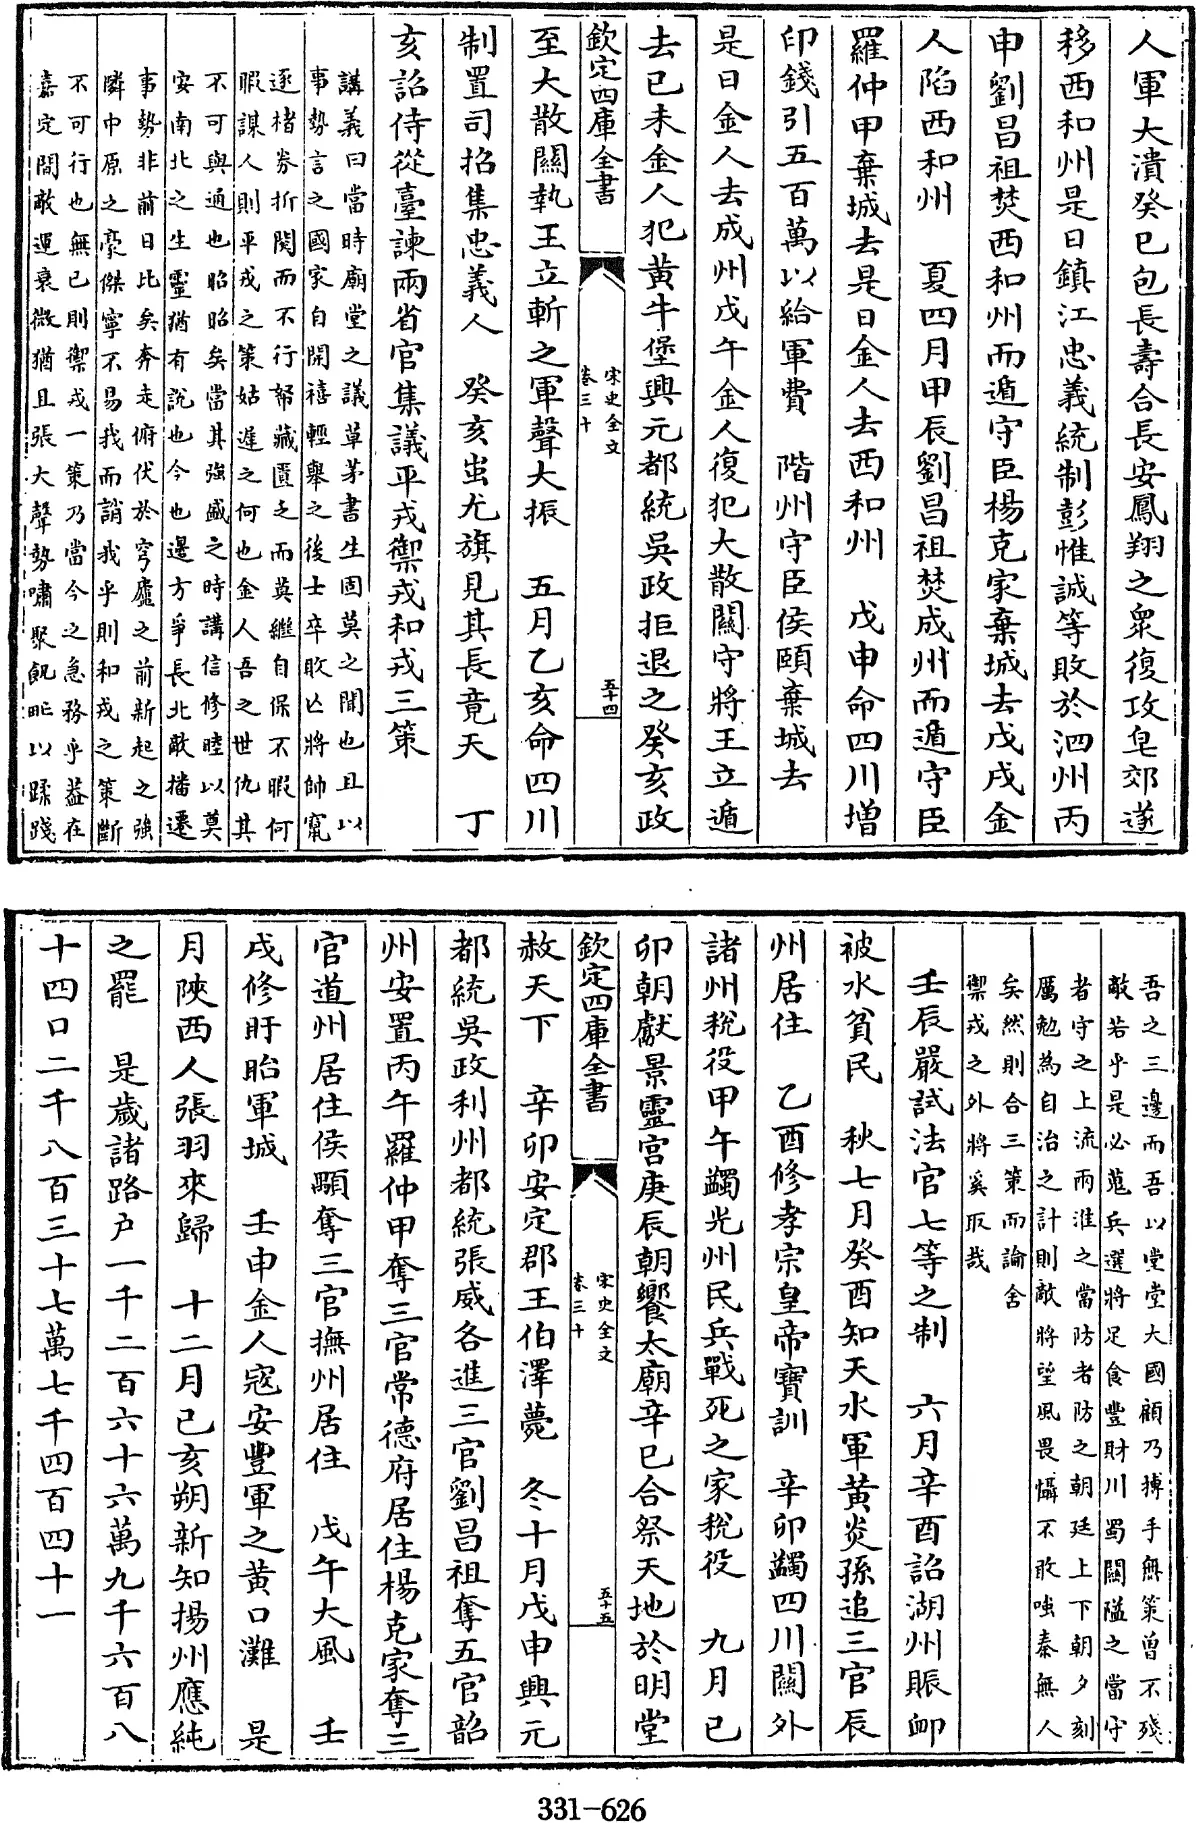 人軍大潰癸巳包長壽合長安鳳翔之衆復攻皂郊遂
移西和州是日鎮江忠義統制彭惟誠等敗於泗州丙
申劉昌祖焚西和州而遁守臣楊克家棄城去戊戌金
人陷西和州　夏四月甲辰劉昌祖焚成州而遁守臣
羅仲甲棄城去是日金人去西和州　戊申命四川增
印錢引五百萬以給軍費　階州守臣侯頤棄城去
是日金人去成州戊午金人復犯大散關守將王立遁
去已未金人犯黃牛堡興元都統吳政拒退之癸亥政
欽定四庫全書
宋史全文
卷三十
五十四
至大散關執王立斬之軍聲大振　五月乙亥命四川
制置司招集忠義人　癸亥蚩尤旗見其長竟天　丁
亥詔侍從臺諫兩省官集議平戎禦戎和戎三策
講義曰當時廟堂之議草茅書生固莫之聞也且以
事勢言之國家自開禧輕舉之後士卒敗亡將帥竄
逐楮券折閱而不行帑藏匱乏而莫繼自保不暇何
暇謀人則平戎之策姑遲之何也金人吾之世仇其
不可與通也昭昭矣當其強盛之時講信修睦以莫
安南北之生靈猶有說也今也邊方爭長北敵播遷
事勢非前日比矣奔走俯伏於穹廬之前新起之強
隣中原之豪傑寧不易我而誚我乎則和戎之策斷
不可行也無已則禦戎一策乃當今之急務乎葢在
嘉定間敵運衰微猶且張大聲勢嘯聚飢甿以蹂踐
吾之三邊而吾以堂堂大國顧乃搏手無策曽不殘
敵若乎是必蒐兵選將足食豐財川蜀關隘之當守
者守之上流兩淮之當防者防之朝廷上下朝夕刻
厲勉為自治之計則敵將望風畏懾不敢嗤秦無人
矣然則合三策而論舍
禦戎之外將奚取哉
壬辰嚴試法官七等之制　六月辛酉詔湖州賑䘏
被水貧民　秋七月癸酉知天水軍黃炎孫追三官辰
州居住　乙酉修孝宗皇帝寶訓　辛卯蠲四川關外
諸州稅役甲午蠲光州民兵戰死之家稅役　九月已
卯朝獻景靈宮庚辰朝饗太廟辛巳合祭天地於明堂
欽定四庫全書
宋史全文
卷三十
五十五
赦天下　辛卯安定郡王伯澤薨　冬十月戊申興元
都統吳政利州都統張威各進三官劉昌祖奪五官韶
州安置丙午羅仲甲奪三官常德府居住楊克家奪三
官道州居住侯顒奪三官撫州居住　戊午大風　壬
戌修盱眙軍城　壬申金人寇安豐軍之黃口灘　是
月陜西人張羽來歸　十二月己亥朔新知揚州應純
之罷　是歲諸路户一千二百六十六萬九千六百八
十四口二千八百三十七萬七千四百四十一
331-626